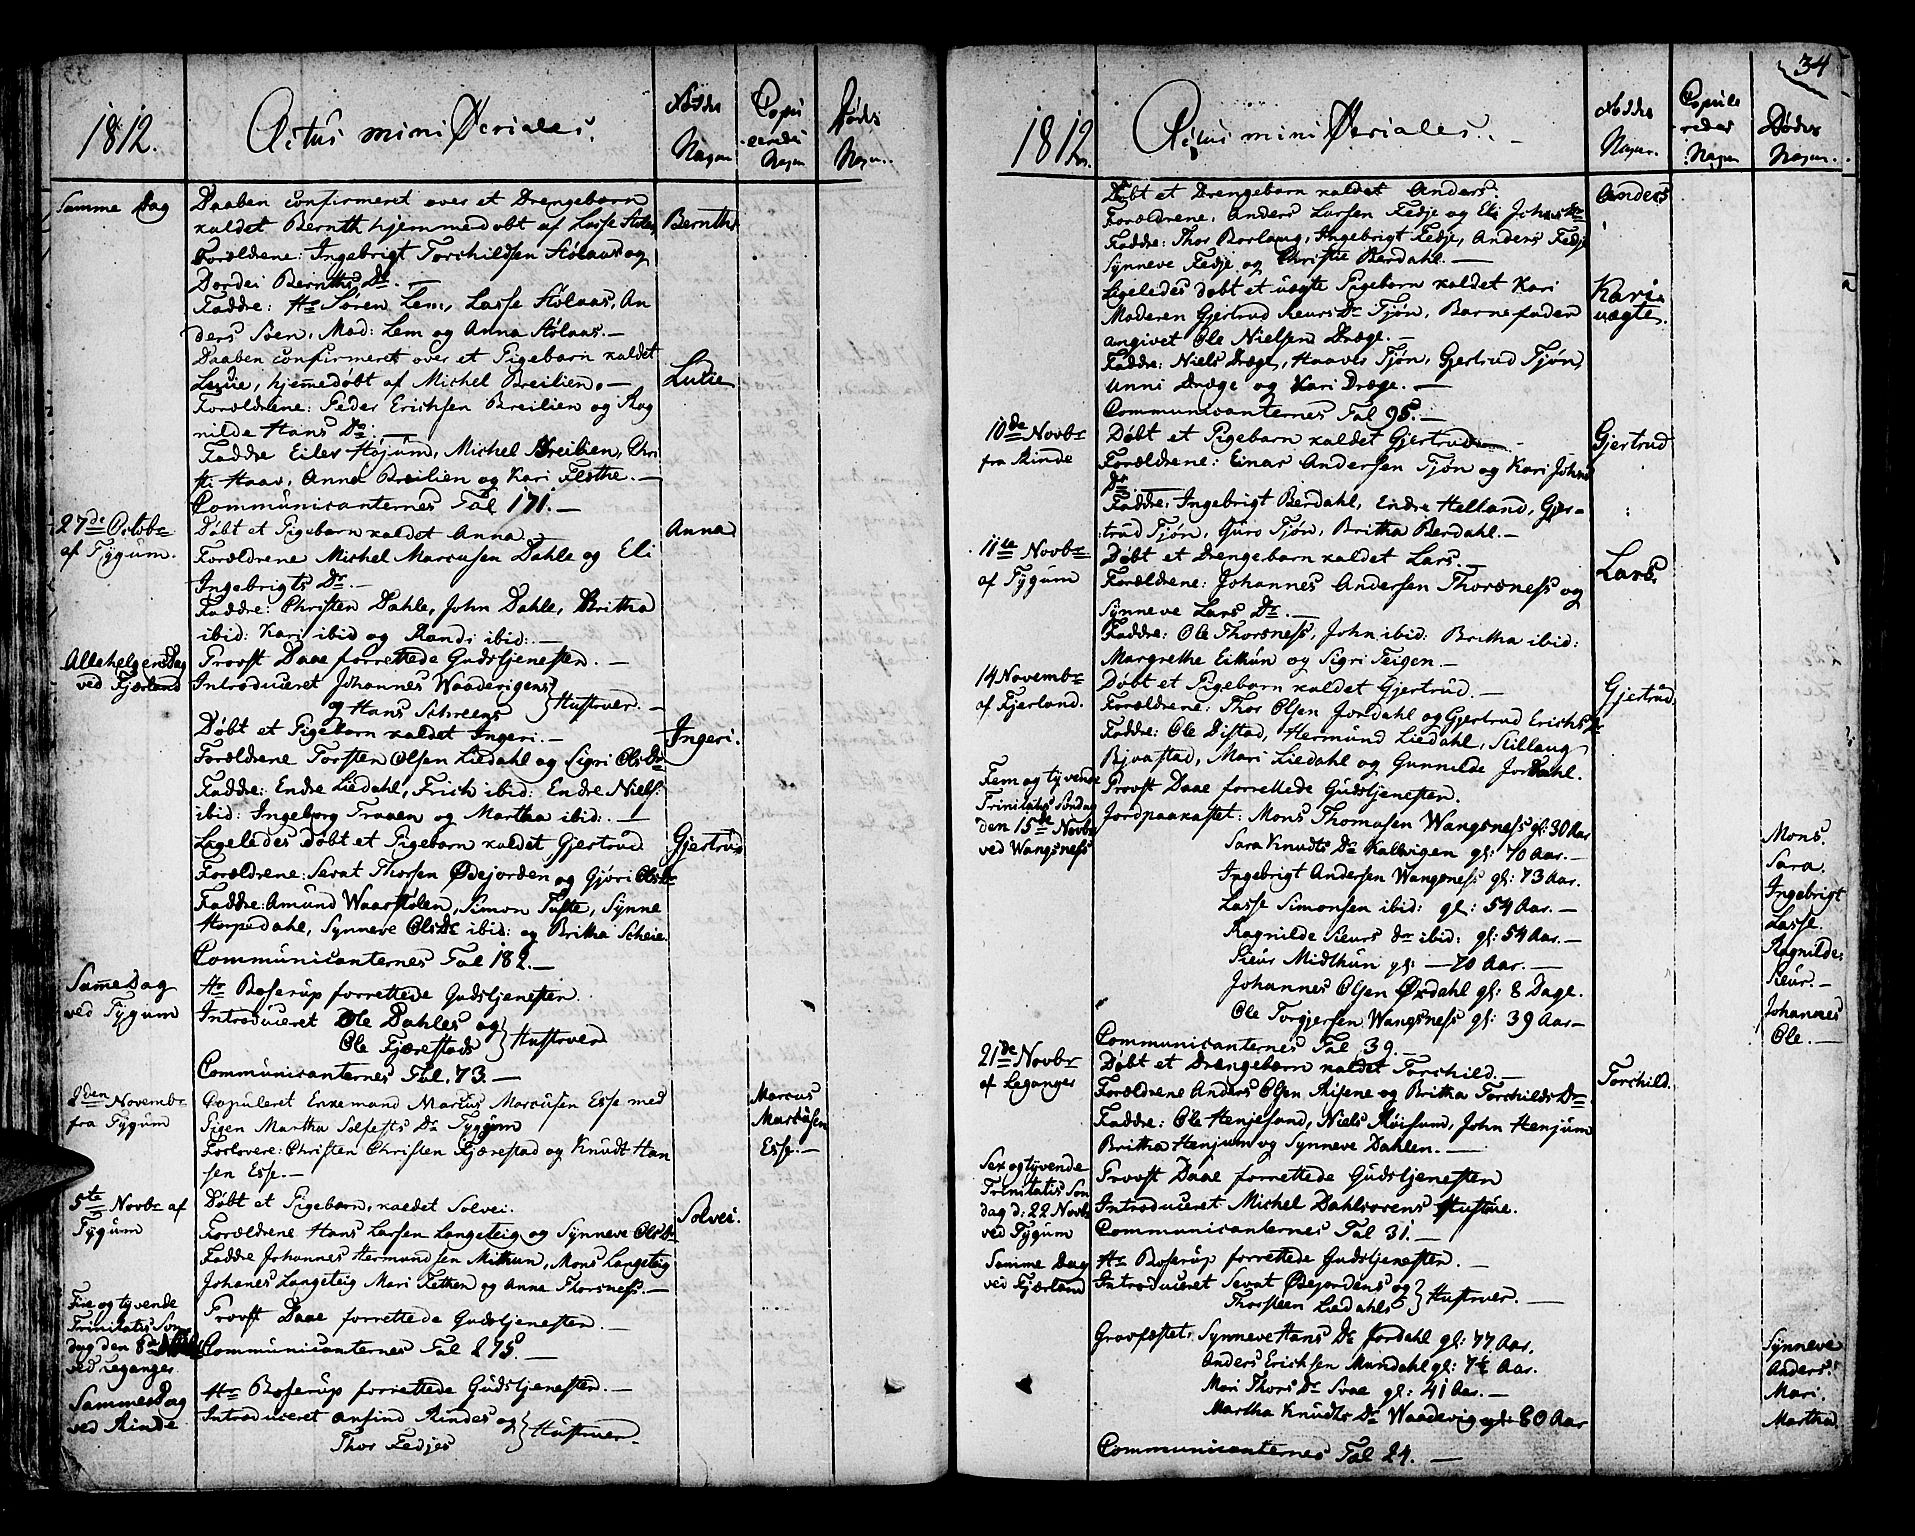 1812.
Actus ministeriales.
Fødde Nagen
Copulerede Nagn
Døde Nagn.
Samme Dag
Daaben confirmeret over et Drengebarn
kaldet Bernth hjemmedøbt af Lasse Støl
Bernth
Forældrene: Ingebrigt Torchildsen Stølaas og
Dordei Bernths Dr. —
Faddre: Hr Søren Lem, Lasse Stølaas, An
ders Soen, Mad: Lem og Anna Stølaas. —
Daaben confirmeret over et Pigebarn kaldet
Lucie, hjemedøbt af Michel Breilien. —
Lucie
Forældrene: Peder Erichsen Breilien og Rag
nilde Hans Dr: —
Faddre Eiler Højum, Michel Breilien, Chri
st: Haav, Anna Breilien og Kari Flæthe. —
Communicanternes Tal 171. —
27de Octobr
af Tygum.
Døbt et Pigebarn kaldet Anna.
Anna
Forældrene Michel Marcusen Dahle og Eli
Ingebrigts Dr. —
Faddre: Christen Dahle, John Dahle, Britha
ibid: Kari ibid og Randi ibid: —
Allehelgens Dag
ved Fjærland
Provst Daae forrettede Gudstjenesten. —
Introduceret Johannes Waaderigens
og Hans Schreegs } Hustruer. —
Døbt et Pigebarn kaldet Ingeri. —
Ingeri.
Forældrene Torsten Olsen Liedahl og Sigri Ols Dr
Faddre: Endre Liedahl, Erich ibid: Endre Niels:
ibid: Ingeborg Traaen og Martha ibid: —
Ligeledes døbt et Pigebarn kaldet Gjertrud
Gjertrud
Forældrene: Sevat Thorsen Ødejorden og Gjøri Ols Dr
Faddre: Amund Waarstølen, Simon Tufte, Synne
Horpedahl, Synneve Ols Dr ibid: og Britha Scheie.
Communicanternes Tal 182. —
Same Dag
ved Tygum
Hr Boserup forrettede Gudstjenesten.
Introduceret Ole Dahles og
Ole Fjærestads } Hustruer
Communicanternes Tal. 73. —
2den Novembr
fra Tygum
Copuleret Enkemand Marcus Marcusen Esse med
Pigen Martha Solfests Dr Tygum
Marcus
Marcusen
Esse. —
Forlovere: Christen Christen Fjærestad og Knudt Han
sen Esse. —
5te Novbr af
Tygum
Døbt et Pigebarn, kaldet Solvei.
Solvei.
Forældrene Hans Larsen Langeteig og Synneve Ols Dr
Faddre Johannes Hermundsen Mithun, Mons Langeteig
Johanes Langeteig Mari Fethen og Anna Thorsness. —
Fire og tyvende
Trinitatis Søn
dag den 8de Novbr
ved Leganger
Provst Daae forrettede Gudstjenesten. —
Communicanternes Tal 275. —
Samme Dag
ved Rinde
Hr Boserup forrettede Gudstjenesten. —
Introduceret Anfind Rindes og
Thor Fedjes } Hustruer. —
34
1812
Actus ministeriales. —
Fødde Nagn.
Copulereder Nagn
Døder Nagn.
Døbt et Drengebarn kaldet Anders.
Anders
Forældrene. Anders Larsen Fedje og Eli Johns Dr
Faddre: Thor Borlaug, Ingebrigt Fedje, Anders Fedje
Synneve Fedje og Christie Berdahl. —
Ligeledes døbt et uægte Pigebarn kaldet Kari
Kari
uægte.
Moderen Gjertrud Seurs Dr Tjøn, Barnefader
angivet Ole Nielsen Dræge. —
Faddre: Niels Dræge, Haavel Tjøn, Gjertrud Tjøn,
Anni Dræge og Kari Dræge. —
Communicanternes Tal 95. —
10de Novbr
fra Rinde
Døbt et Pigebarn kaldet Gjertrud —
Gjertrud
Forældrene: Einar Andersen Tjøn og Kari Johans
Dr. —
Faddre: Ingebrigt Berdahl, Endre Helland, Gjer-
trud Tjøn, Guro Tjøn, Britha Berdahl. —
11te Novbr
af Tygum
Døbt et Drengebarn kaldet Lars. —
Lars.
Forældrene: Johannes Andersen Thorsness og
Synneve Lars Dr. —
Faddre: Ole Thorsness, John ibid: Britha ibid:
Margrethe Eithun og Sigri Teigen. —
14 Novembr
af Fjerland.
Døbt et Pigebarn kaldet Gjertrud. —
Gjertrud.
Forældrene: Thor Olsen Jordahl og Gjertrud Erichs Dr
Faddre: Ole Distad, Hermund Liedahl, Stillaug
Bjvastad, Mari Liedahl og Gunnilde Jordahl.
Fem og tyvende
Trinitatis Søndag
den 15de Novbr
ved Wangsness
Provst Daae forrettede Gudstjenesten.
Jordpaakastet: Mons Thomasen Wangsness gl: 30 Aar
Mons.
Sara Knudts Dr Kallvigen gl: 70 Aar. —
Sara.
Ingebrigt Andersen Wangsness gl: 73 Aar.
Ingebrigt
Lasse Simonsen ibid: gl: 54 Aar. —
Lasse.
Ragnilde Seurs Dr ibid: gl: 54 Aar. —
Ragnilde.
Sieur Midthun gl: — 70 Aar. —
Seur. —
Johannes Olsen Øxdahl gl: 8 Dage.
Johannes
Ole Torgjersen Wangsness gl: 39 Aar —
Ole. —
Communicanternes Tal 39. —
21de Novbr
af Leganger
Døbt et Drengebarn kaldet Torchild. —
Torchild.
Forældrene Anders Olsen Risene og Britha Torchilds Dr
Faddre: Ole Henjesand, Niels Røisum, John Henjum
Britha Henjum og Synneve Dahlen. —
Sex og tyvende
Trinitatis Søn
dag d: 22 Novbr
ved Tygum
Provst Daae forrettede Gudstjenesten
Introduceret Michel Dahlsorens Hustrue.
Communicanternes Tal 31. —
Samme Dag
ved Fjærland
Hr Boserup forrettede Gudstjenesten. —
Introduceret Sevat Ødejordens og
Thorsteen Liedahls } Hustruer. —
Gravfæstet: Synneve Hans Dr Jordahl gl: 77 Aar.
Synneve
Anders Erichsen Mundahl gl: 74 Aar.
Anders.
Mari Thors Dr Svae gl: 41 Aar. —
Mari.
Martha Knudts Dr Waadevig gl: 80 Aar
Martha
Communicanternes Tal 24. —